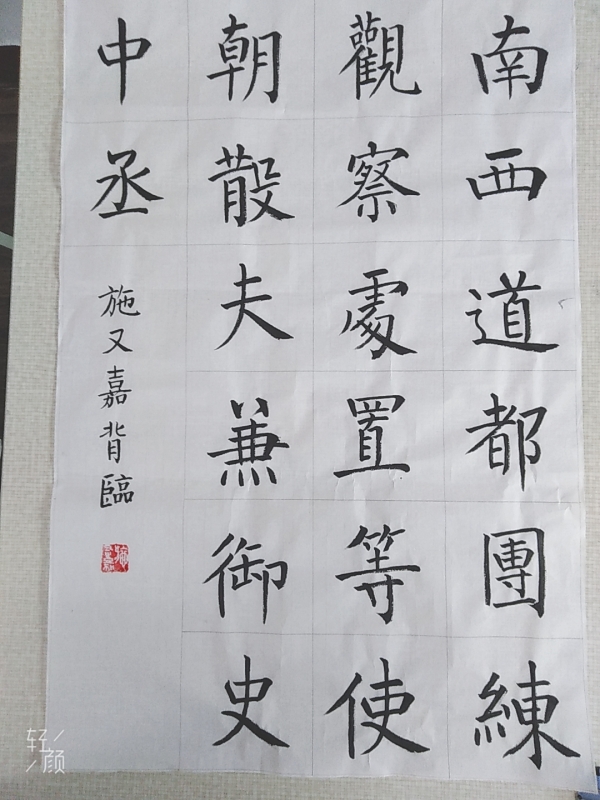 南西道都團練
觀察處置等使
朝散夫兼御史
中丞
施又嘉背臨
轻颜